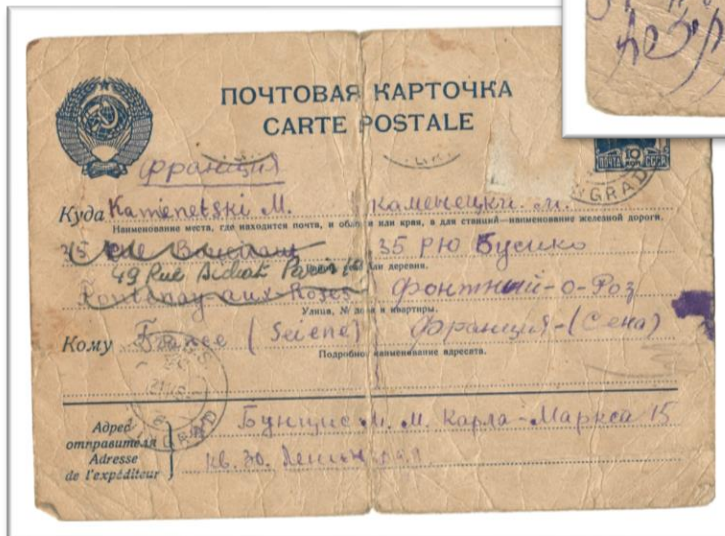 ПОЧТОВАЯ КАРТОЧКА
CARTE POSTALE
ПОЧТА 10 КОП СССР
GRAD
Франция
Куда Kamenetski M. Каменецки. М.
Наименование места, где находится почта, и области или края, а для станций—наименование железной дороги.
35 Rue 35 Рю Бусико
49 Rue Bichat Paris 10 или деревня.
Fontenay-aux-Roses Фонтней-о-Роз
Улица, № дома и квартиры.
Кому France (Seiene) Франция-(Сена)
Подробное наименование адресата.
GRAD
Адрес отправителя
Adresse de l'expéditeur
М. Карла-Маркса 15
кв. 30. Ленинград